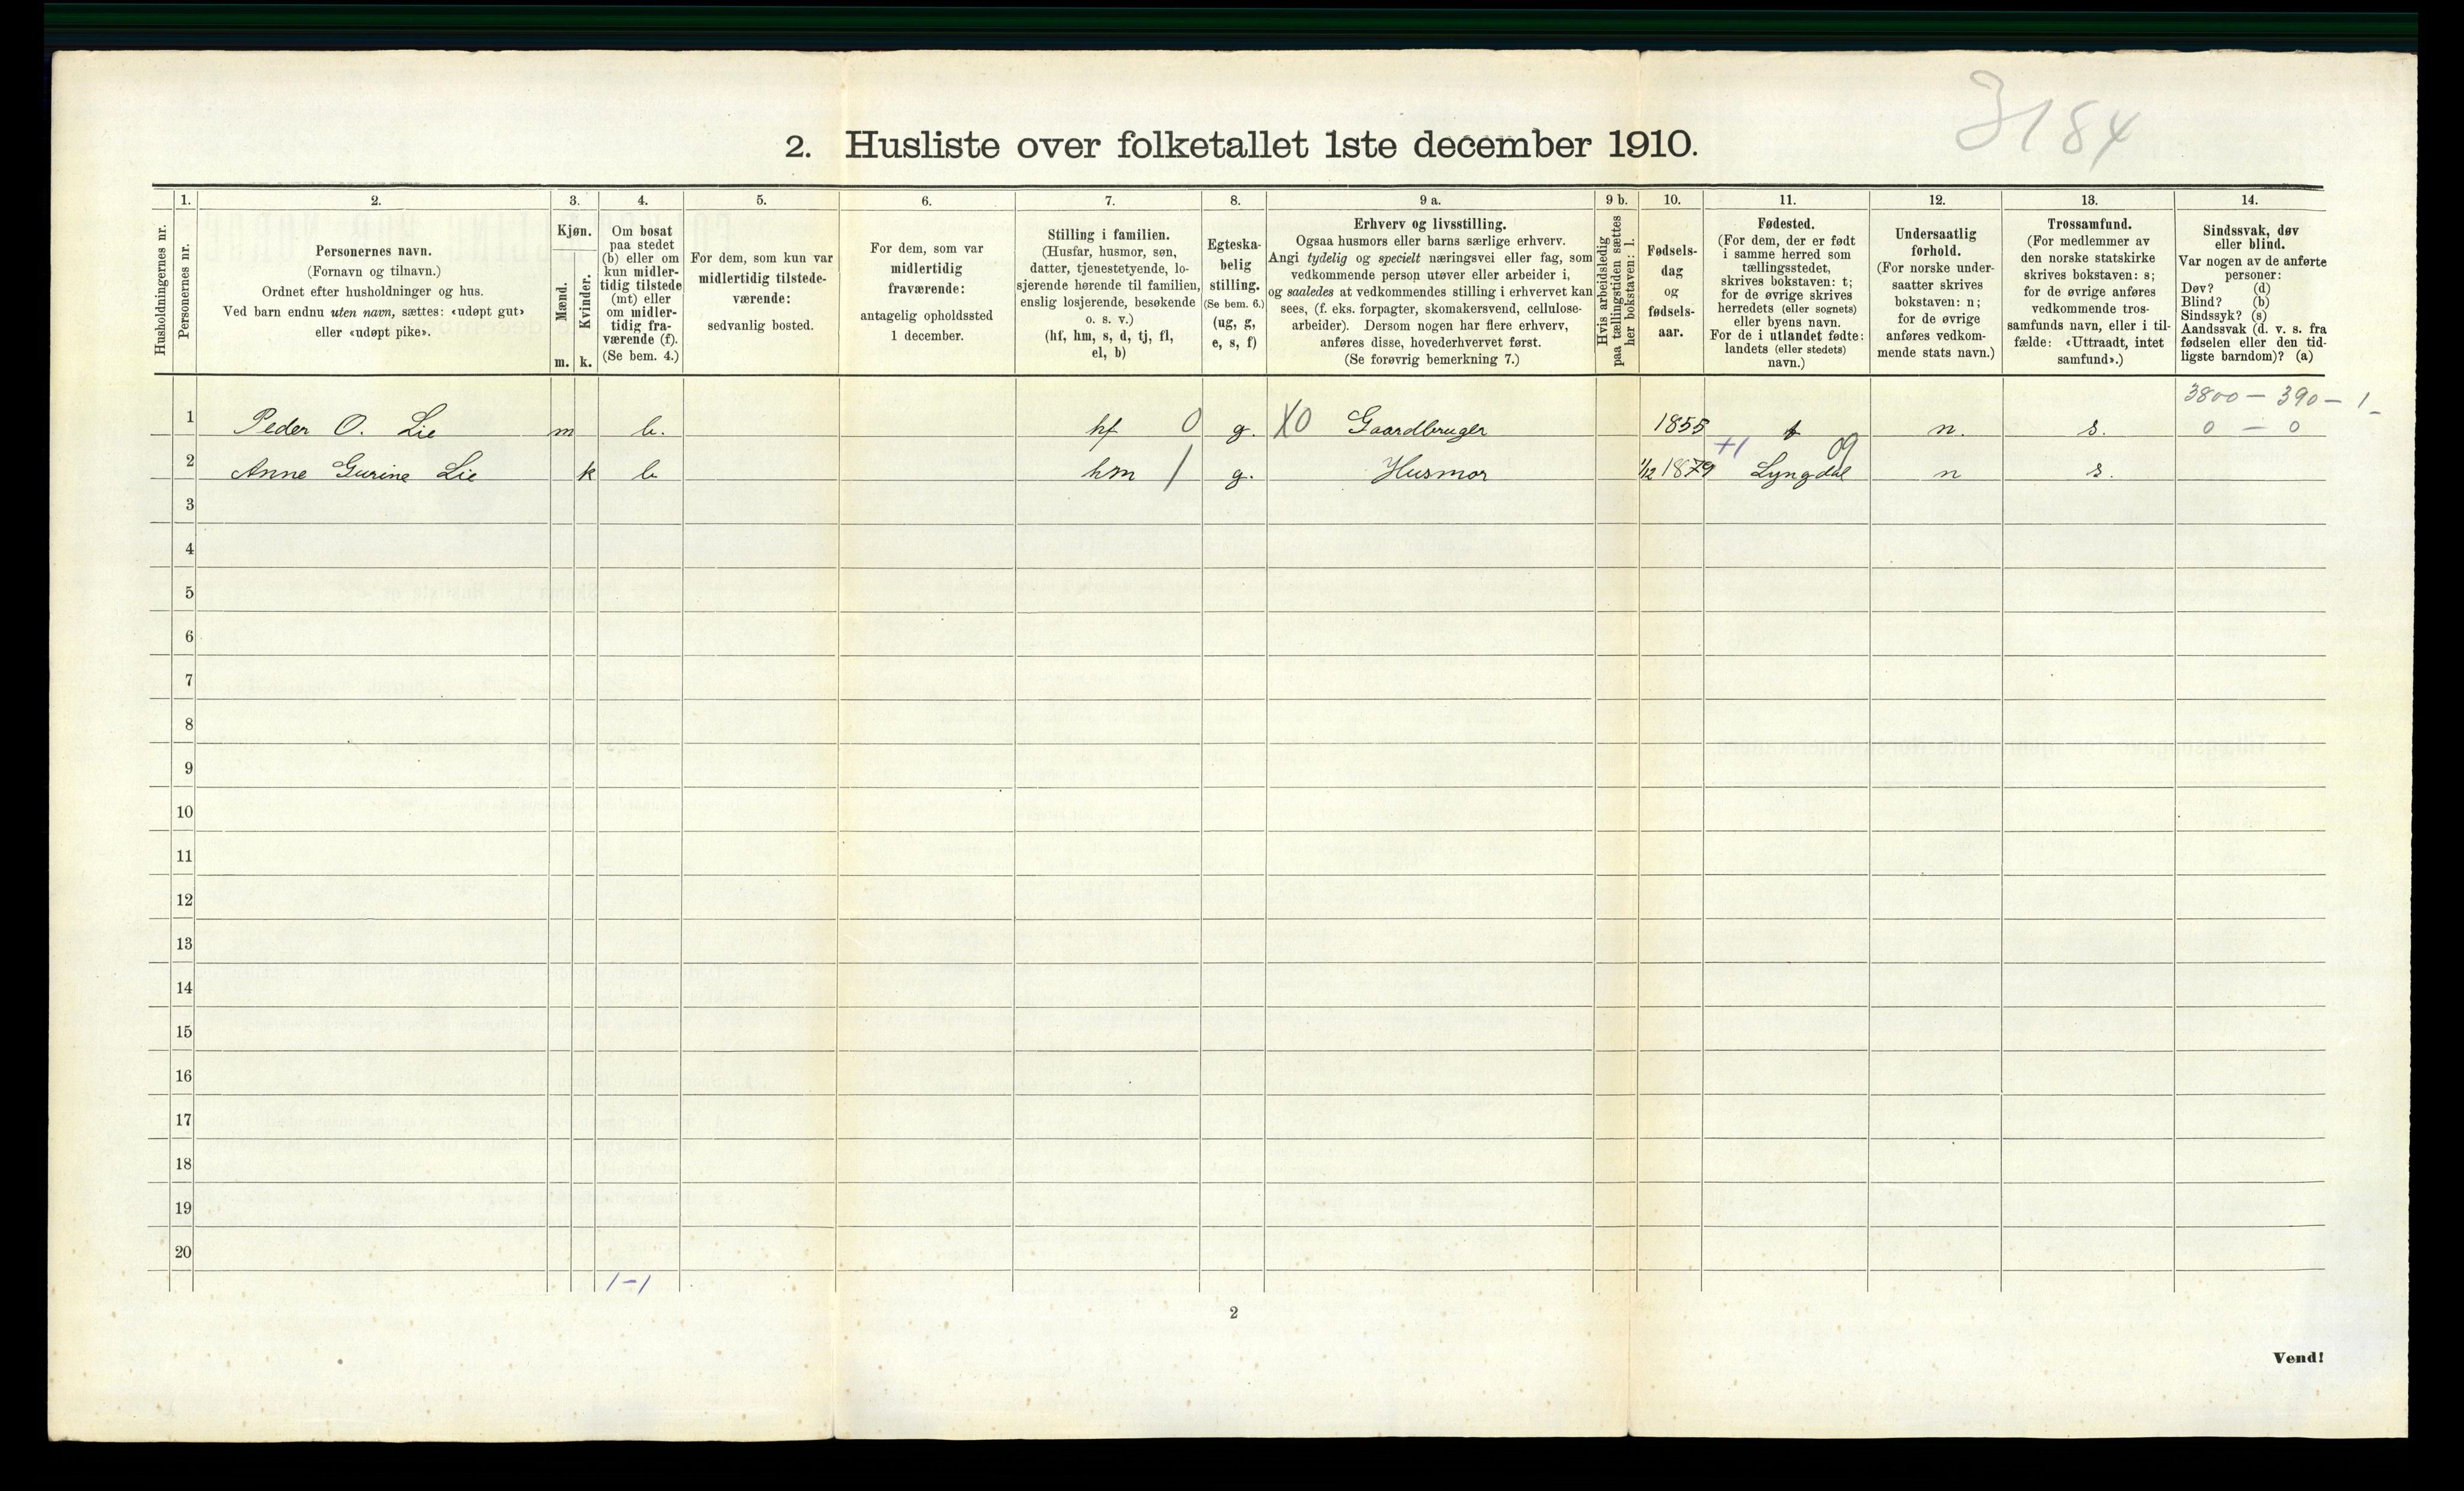 3184
2. Husliste over folketallet 1ste december 1910.
Husholdningernes nr.
1.
Personernes nr.
2.
Personernes navn.
(Fornavn og tilnavn.)
Ordnet efter husholdninger og hus.
Ved barn endnu uten navn, sættes: «udøpt gut»
eller «udøpt pike».
3.
Kjøn.
Mænd.
m.
Kvinder.
k.
4.
Om bosat
paa stedet
(b) eller om
kun midler-
tidig tilstede
(mt) eller
om midler-
tidig fra-
værende (f).
(Se bem. 4.)
5.
For dem, som kun var
midlertidig tilstede-
værende:
sedvanlig bosted.
6.
For dem, som var
midlertidig
fraværende:
antagelig opholdssted
1 december.
7.
Stilling i familien.
(Husfar, husmor, søn,
datter, tjenestetyende, lo-
sjerende hørende til familien,
enslig losjerende, besøkende
o. s. v.)
(hf, hm, s, d, tj, fl,
el, b)
8.
Egteska-
belig
stilling.
(Se bem. 6.)
(ug, g,
e, s, f)
9 a.
Erhverv og livsstilling.
Ogsaa husmors eller barns særlige erhverv.
Angi tydelig og specielt næringsvei eller fag, som
vedkommende person utøver eller arbeider i,
og saaledes at vedkommendes stilling i erhvervet kan
sees, (f. eks. forpagter, skomakersvend, cellulose-
arbeider). Dersom nogen har flere erhverv,
anføres disse, hovederhvervet først.
(Se forøvrig bemerkning 7.)
9 b.
Hvis arbeidsledig
paa tællingstiden sættes
her bokstaven: l.
10.
Fødsels-
dag
og
fødsels-
aar.
11.
Fødested.
(For dem, der er født
i samme herred som
tællingsstedet,
skrives bokstaven: t;
for de øvrige skrives
herredets (eller sognets)
eller byens navn.
For de i utlandet fødte:
landets (eller stedets)
navn.)
12.
Undersaatlig
forhold.
(For norske under-
saatter skrives
bokstaven: n;
for de øvrige
anføres vedkom-
mende stats navn.)
13.
Trossamfund.
(For medlemmer av
den norske statskirke
skrives bokstaven: s;
for de øvrige anføres
vedkommende tros-
samfunds navn, eller i til-
fælde: «Uttraadt, intet
samfund».)
14.
Sindssvak, døv
eller blind.
Var nogen av de anførte
personer:
Døv? (d)
Blind? (b)
Sindssyk? (s)
Aandssvak (d. v. s. fra
fødselen eller den tid-
ligste barndom)? (a)
3800 - 390 - 1 -
1 Peder O. Lie m b. hf 0 g. X0 Gaardbruger 1855 t n. s. 0 - 0
+1 09
2 Anne Gurine Lie k b hm 1 g. Husmor 1/12 1879 Lyngdal n s.
3
4
5
6
7
8
9
10
11
12
13
14
15
16
17
18
19
20
1-1
2
Vend!